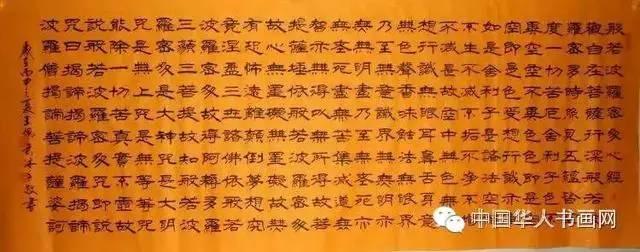 般若波羅蜜多心經
觀自在菩薩行深般若波
羅蜜多時照見五蘊皆空
度一切苦厄舍利子色不
異空空不異色色即是空
空即是色受想行識亦復
如是舍利子是諸法空相
不生不滅不垢不淨不增
不減是故空中無色無受
想行識無眼耳鼻舌身意
無色聲香味觸法無眼界
乃至無意識界無無明亦
無無明盡乃至無老死亦
無老死盡無苦集滅道無
智亦無得以無所得故菩
提薩埵依般若波羅蜜多
故心無罣礙無罣礙故無
有恐怖遠離顛倒夢想究
竟涅槃三世諸佛依般若
波羅蜜多故得阿耨多羅
三藐三菩提故知般若波
羅蜜多是大神咒是大明
咒是無上咒是無等等咒
能除一切苦真實不虛故
說般若波羅蜜多咒即說
咒曰揭諦揭諦波羅揭諦
波羅僧揭諦菩提薩婆訶
歲在丙申之夏王書
中国华人书画网